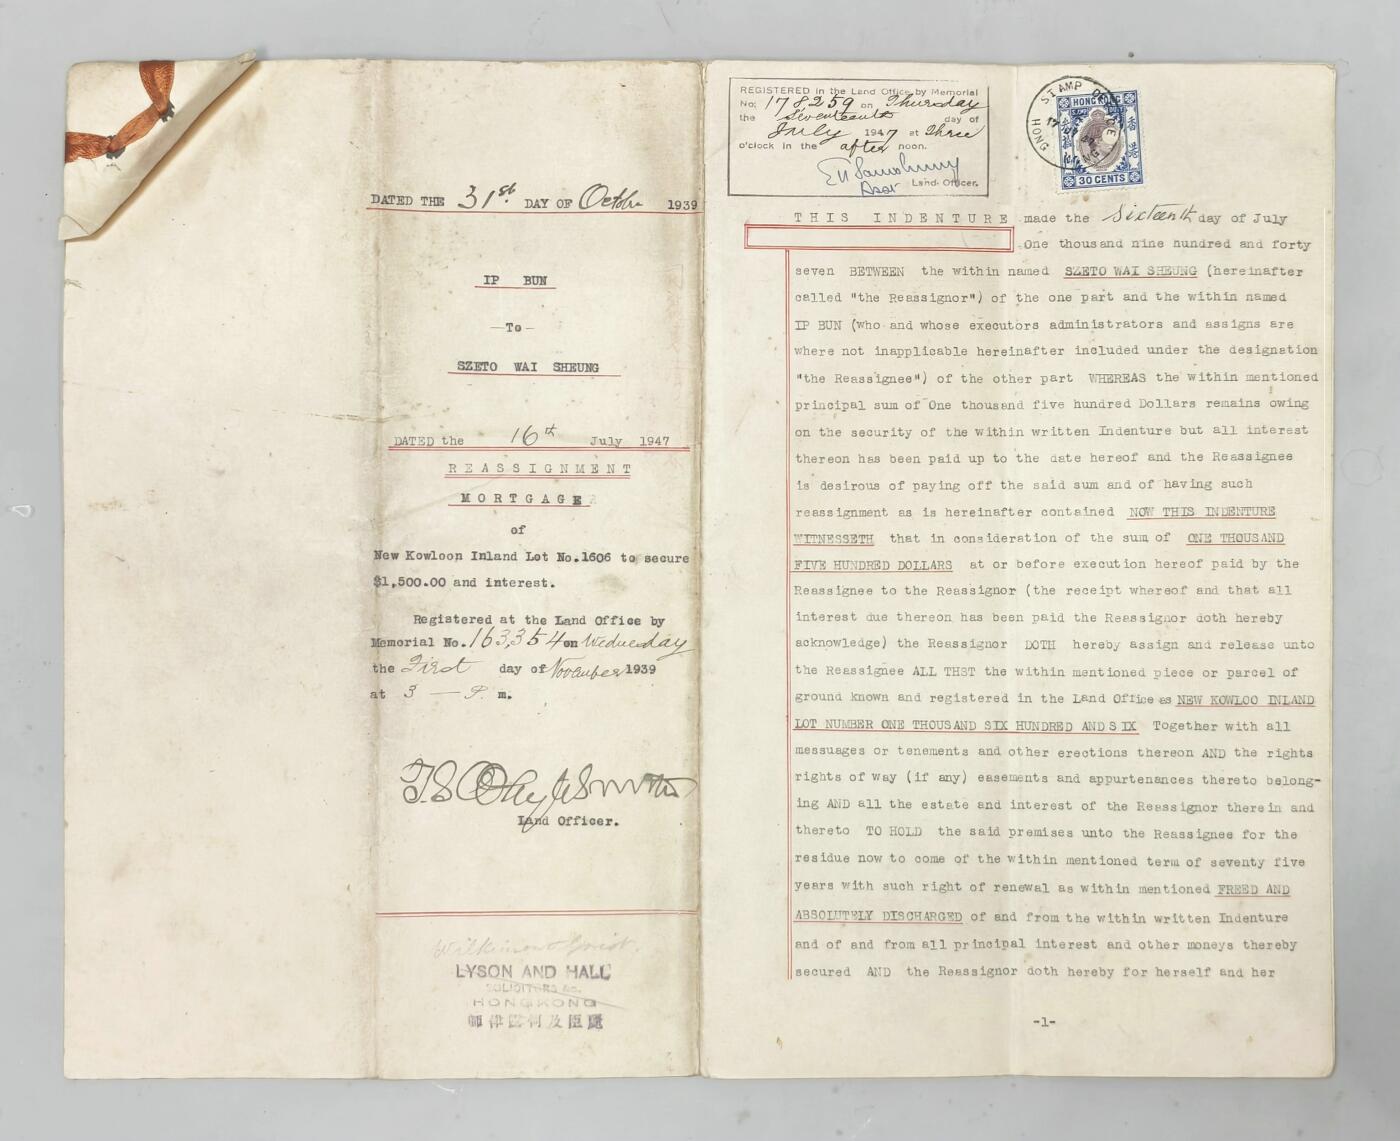 DATED THE 31st. DAY OF October 1939
IP BUN
—To—
SZETO WAI SHEUNG
DATED the 16th July 1947
REASSIGNMENT
MORTGAGE
of
New Kowloon Inland Lot No.1606 to secure
$1,500.00 and interest.
Registered at the Land Office by
Memorial No. 163,354 on Wednesday
the First day of November 1939
at 3 — P. m.
Land Officer.
Wilkinson & Grist.
LYSON AND HALL
SOLICITORS &c.
HONGKONG
REGISTERED in the Land Office by Memorial
No. 178,259 on Thursday
the Seventeenth day of
July 1947 at Three
o'clock in the after noon.
Asst Land Officer.
STAMP OFFICE
HONG KONG
HONG KONG
STAMP DUTY
香港
30 CENTS
THIS INDENTURE made the Sixteenth day of July
One thousand nine hundred and forty
seven BETWEEN the within named SZETO WAI SHEUNG (hereinafter
called "the Reassignor") of the one part and the within named
IP BUN (who and whose executors administrators and assigns are
where not inapplicable hereinafter included under the designation
"the Reassignee") of the other part WHEREAS the within mentioned
principal sum of One thousand five hundred Dollars remains owing
on the security of the within written Indenture but all interest
thereon has been paid up to the date hereof and the Reassignee
is desirous of paying off the said sum and of having such
reassignment as is hereinafter contained NOW THIS INDENTURE
WITNESSETH that in consideration of the sum of ONE THOUSAND
FIVE HUNDRED DOLLARS at or before execution hereof paid by the
Reassignee to the Reassignor (the receipt whereof and that all
interest due thereon has been paid the Reassignor doth hereby
acknowledge) the Reassignor DOTH hereby assign and release unto
the Reassignee ALL THST the within mentioned piece or parcel of
ground known and registered in the Land Office as NEW KOWLOO INLAND
LOT NUMBER ONE THOUSAND SIX HUNDRED AND SIX Together with all
messuages or tenements and other erections thereon AND the rights
rights of way (if any) easements and appurtenances thereto belong-
ing AND all the estate and interest of the Reassignor therein and
thereto TO HOLD the said premises unto the Reassignee for the
residue now to come of the within mentioned term of seventy five
years with such right of renewal as within mentioned FREED AND
ABSOLUTELY DISCHARGED of and from the within written Indenture
and of and from all principal interest and other moneys thereby
secured AND the Reassignor doth hereby for herself and her
-1-